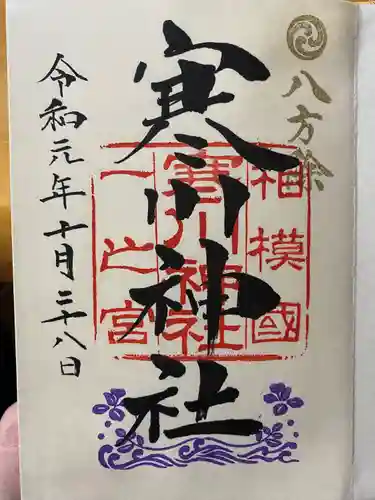 八方除
寒川神社
相模國
寒川神社
一之宮
令和元年十月二十八日